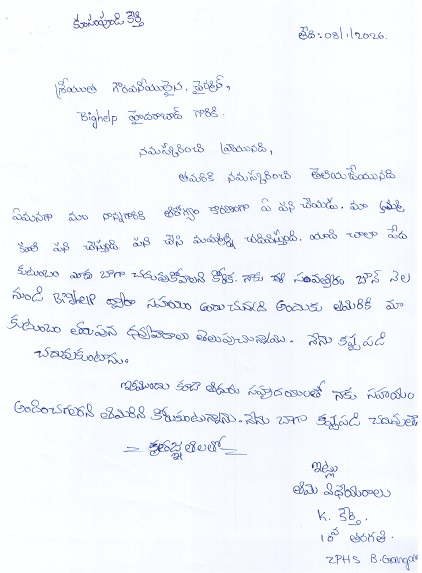 కూసంపూడి కీర్తి
తేది: 08/1/2026.
శ్రీయుత గౌరవనీయులైన. ఛైర్మన్,
Bighelp హైదరాబాద్ గారికి.
నమస్కరించి వ్రాయునది,
తమరికి నమస్కరించి తెలియజేయునది
ఏమనగా మా నాన్నగారికి ఆరోగ్యం కారణంగా ఏ పని చేయడు. మా అమ్మ
కూలి పని చేస్తుంది పని చేసి మమ్మల్ని చదివిస్తుంది. మాది చాలా పేద
కుటుంబం నాకు బాగా చదువుకోవాలని కోరిక. నాకు గత సంవత్సరం జూన్ నెల
నుండి Bighelp ద్వారా సహాయం అందుచున్నది అందుకు తమరికి మా
కుటుంబం తరుపున ధన్యవాదాలు తెలుపుచున్నాను. నేను కష్టపడి
చదువుకుంటాను.
ఇకముందు కూడా తమరు సహృదయంతో నాకు సహాయం
అందించగలరని తమరిని కోరుకుంటున్నాను. నేను బాగా కష్టపడి చదువుతా
= కృతజ్ఞతలతో =
ఇట్లు
తమ విధేయురాలు
K. కీర్తి.
10వ తరగతి.
ZPHS B.Gangaram